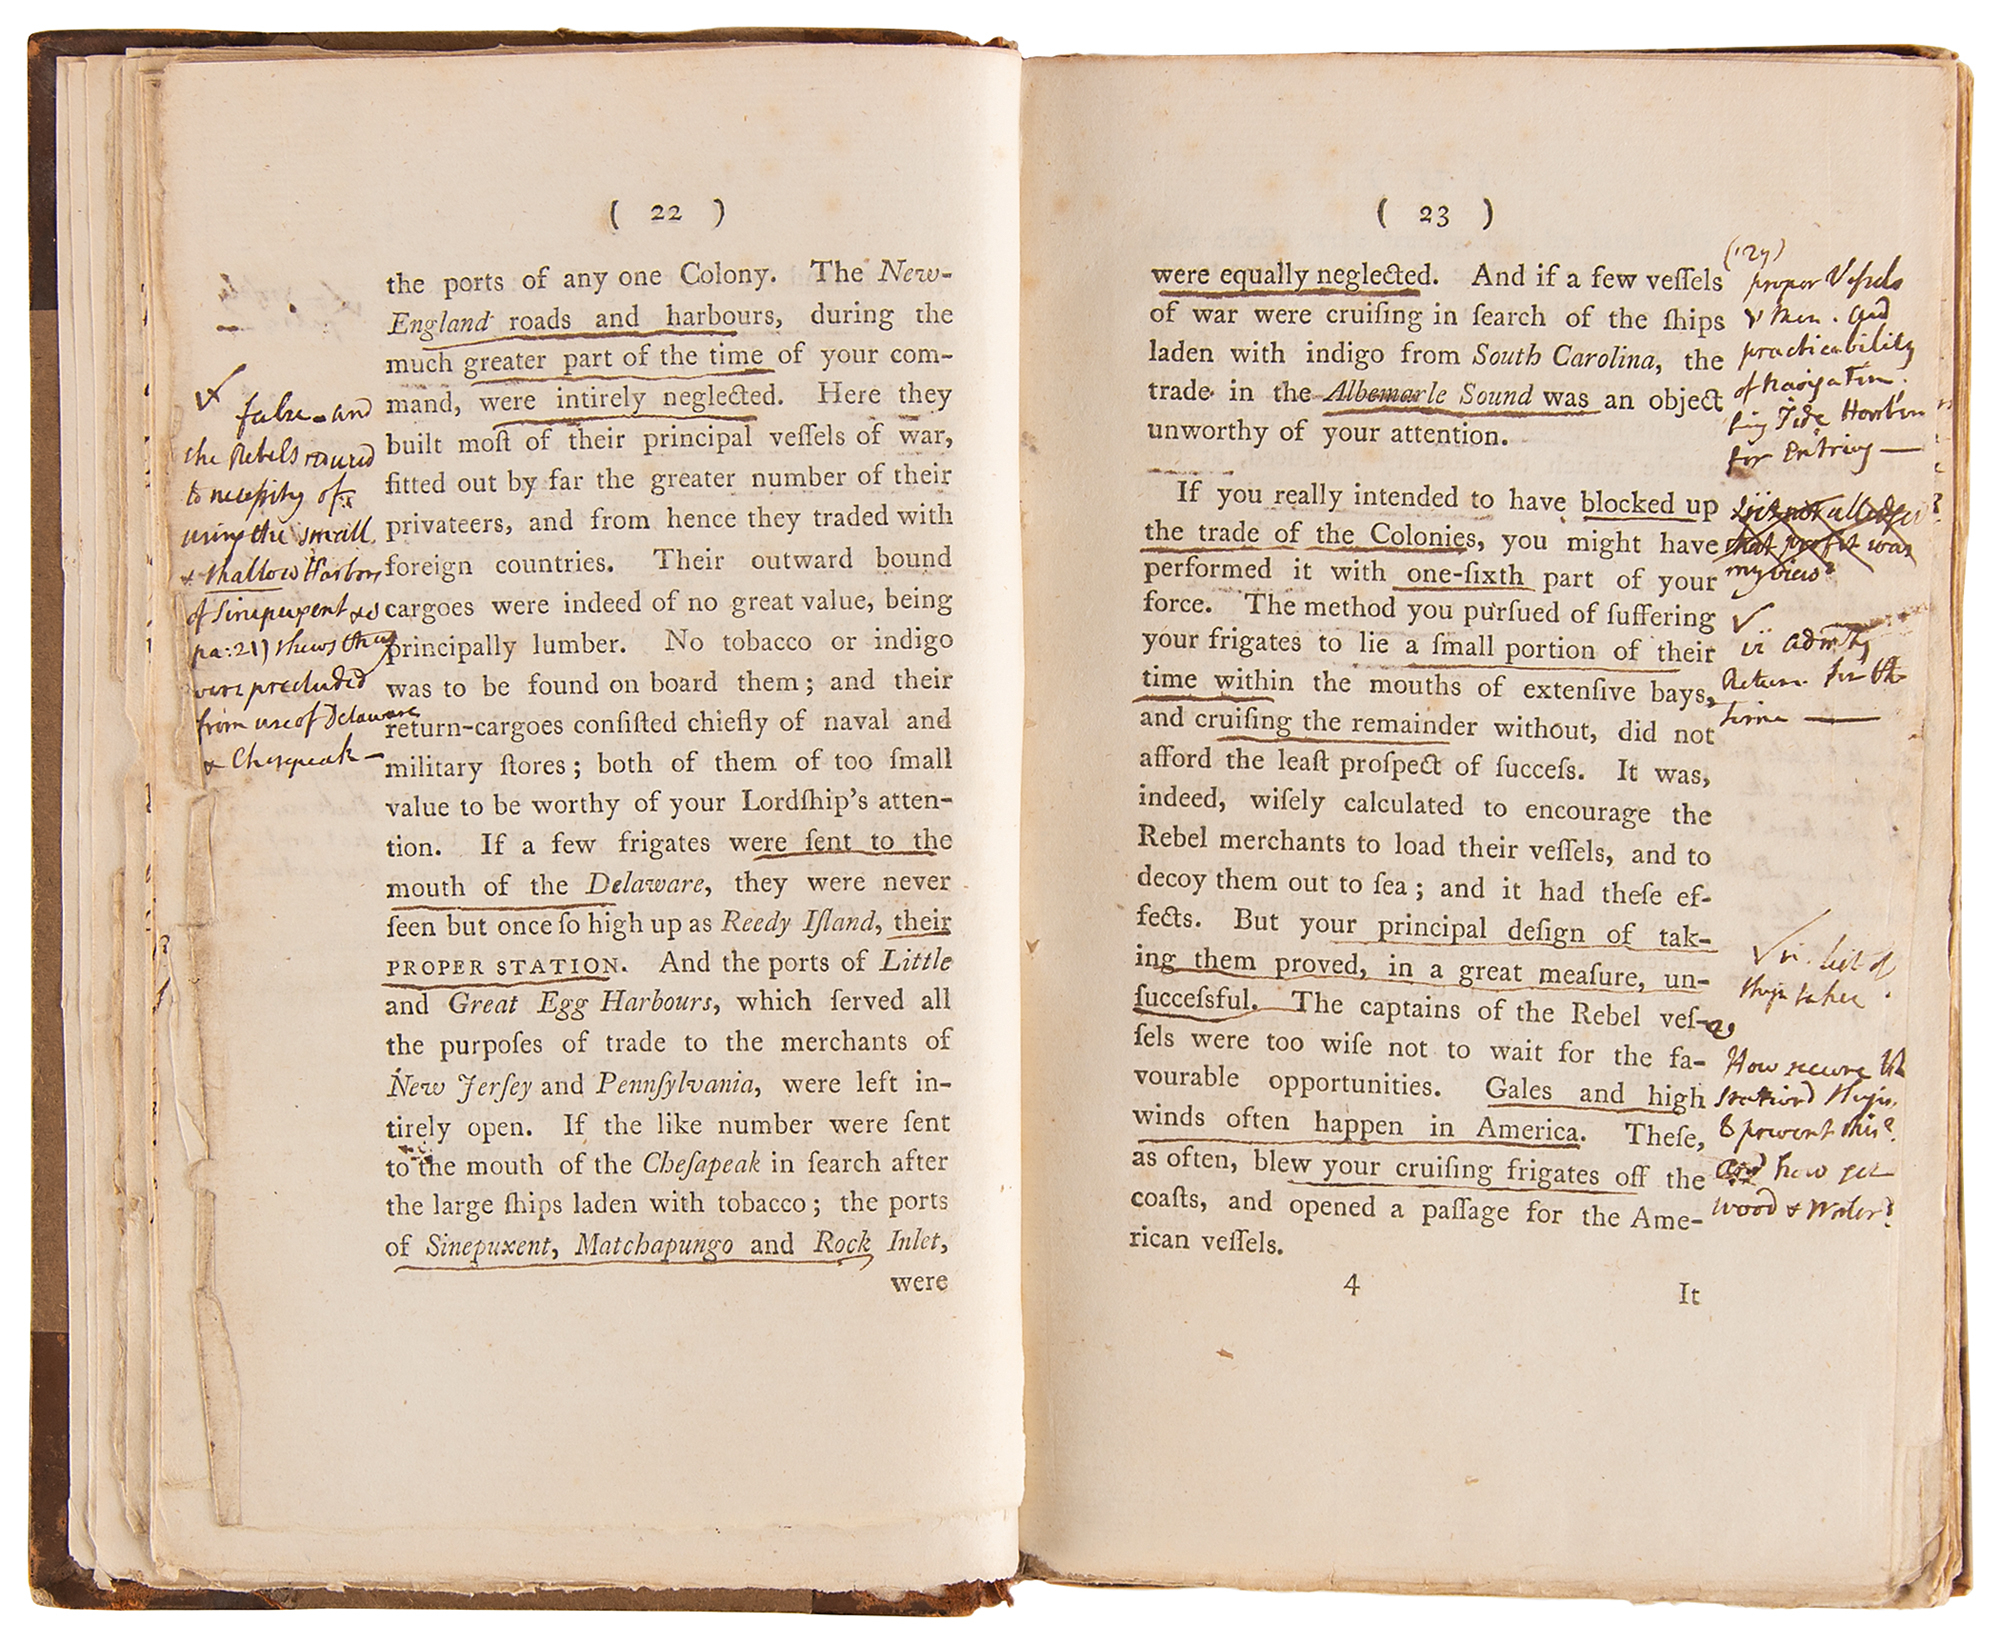 ( 22 )
the ports of any one Colony. The New-
England roads and harbours, during the
much greater part of the time of your com-
mand, were intirely neglected. Here they
built moſt of their principal veſſels of war,
fitted out by far the greater number of their
privateers, and from hence they traded with
foreign countries. Their outward bound
cargoes were indeed of no great value, being
principally lumber. No tobacco or indigo
was to be found on board them; and their
return-cargoes conſiſted chiefly of naval and
military ſtores; both of them of too ſmall
value to be worthy of your Lordſhip's atten-
tion. If a few frigates were ſent to the
mouth of the Delaware, they were never
ſeen but once ſo high up as Reedy Iſland, their
PROPER STATION. And the ports of Little
and Great Egg Harbours, which ſerved all
the purpoſes of trade to the merchants of
New Jerſey and Pennſylvania, were left in-
tirely open. If the like number were ſent
to the mouth of the Cheſapeak in ſearch after
the large ſhips laden with tobacco; the ports
of Sinepuxent, Matchapungo and Rock Inlet,
were
false - and
the Rebels
to necessity of
using the small
& shallow Harbors
of Sinepuxent &c
pa: 21) shews they
were precluded
from use of Delaware
& Chesepeak -
( 23 )
were equally neglected. And if a few veſſels
of war were cruiſing in ſearch of the ſhips
laden with indigo from South Carolina, the
trade in the Albemarle Sound was an object
unworthy of your attention.
If you really intended to have blocked up
the trade of the Colonies, you might have
performed it with one-ſixth part of your
force. The method you purſued of ſuffering
your frigates to lie a ſmall portion of their
time within the mouths of extenſive bays,
and cruiſing the remainder without, did not
afford the leaſt proſpect of ſucceſs. It was,
indeed, wiſely calculated to encourage the
Rebel merchants to load their veſſels, and to
decoy them out to ſea; and it had theſe ef-
fects. But your principal deſign of tak-
ing them proved, in a great meaſure, un-
ſucceſsful. The captains of the Rebel veſ-
ſels were too wiſe not to wait for the fa-
vourable opportunities. Gales and high
winds often happen in America. Theſe,
as often, blew your cruiſing frigates off the
coaſts, and opened a paſſage for the Ame-
rican veſſels.
4 It
proper Vessels
& Men. and
practicability
of Navigation.
Tide Harbors
for Entring —
that profit was
my view?
vi Admty
Return for the
time —
vi. list of
Ships taken
How secure the
station'd Ships,
& prevent this?
and how get
wood & Water?